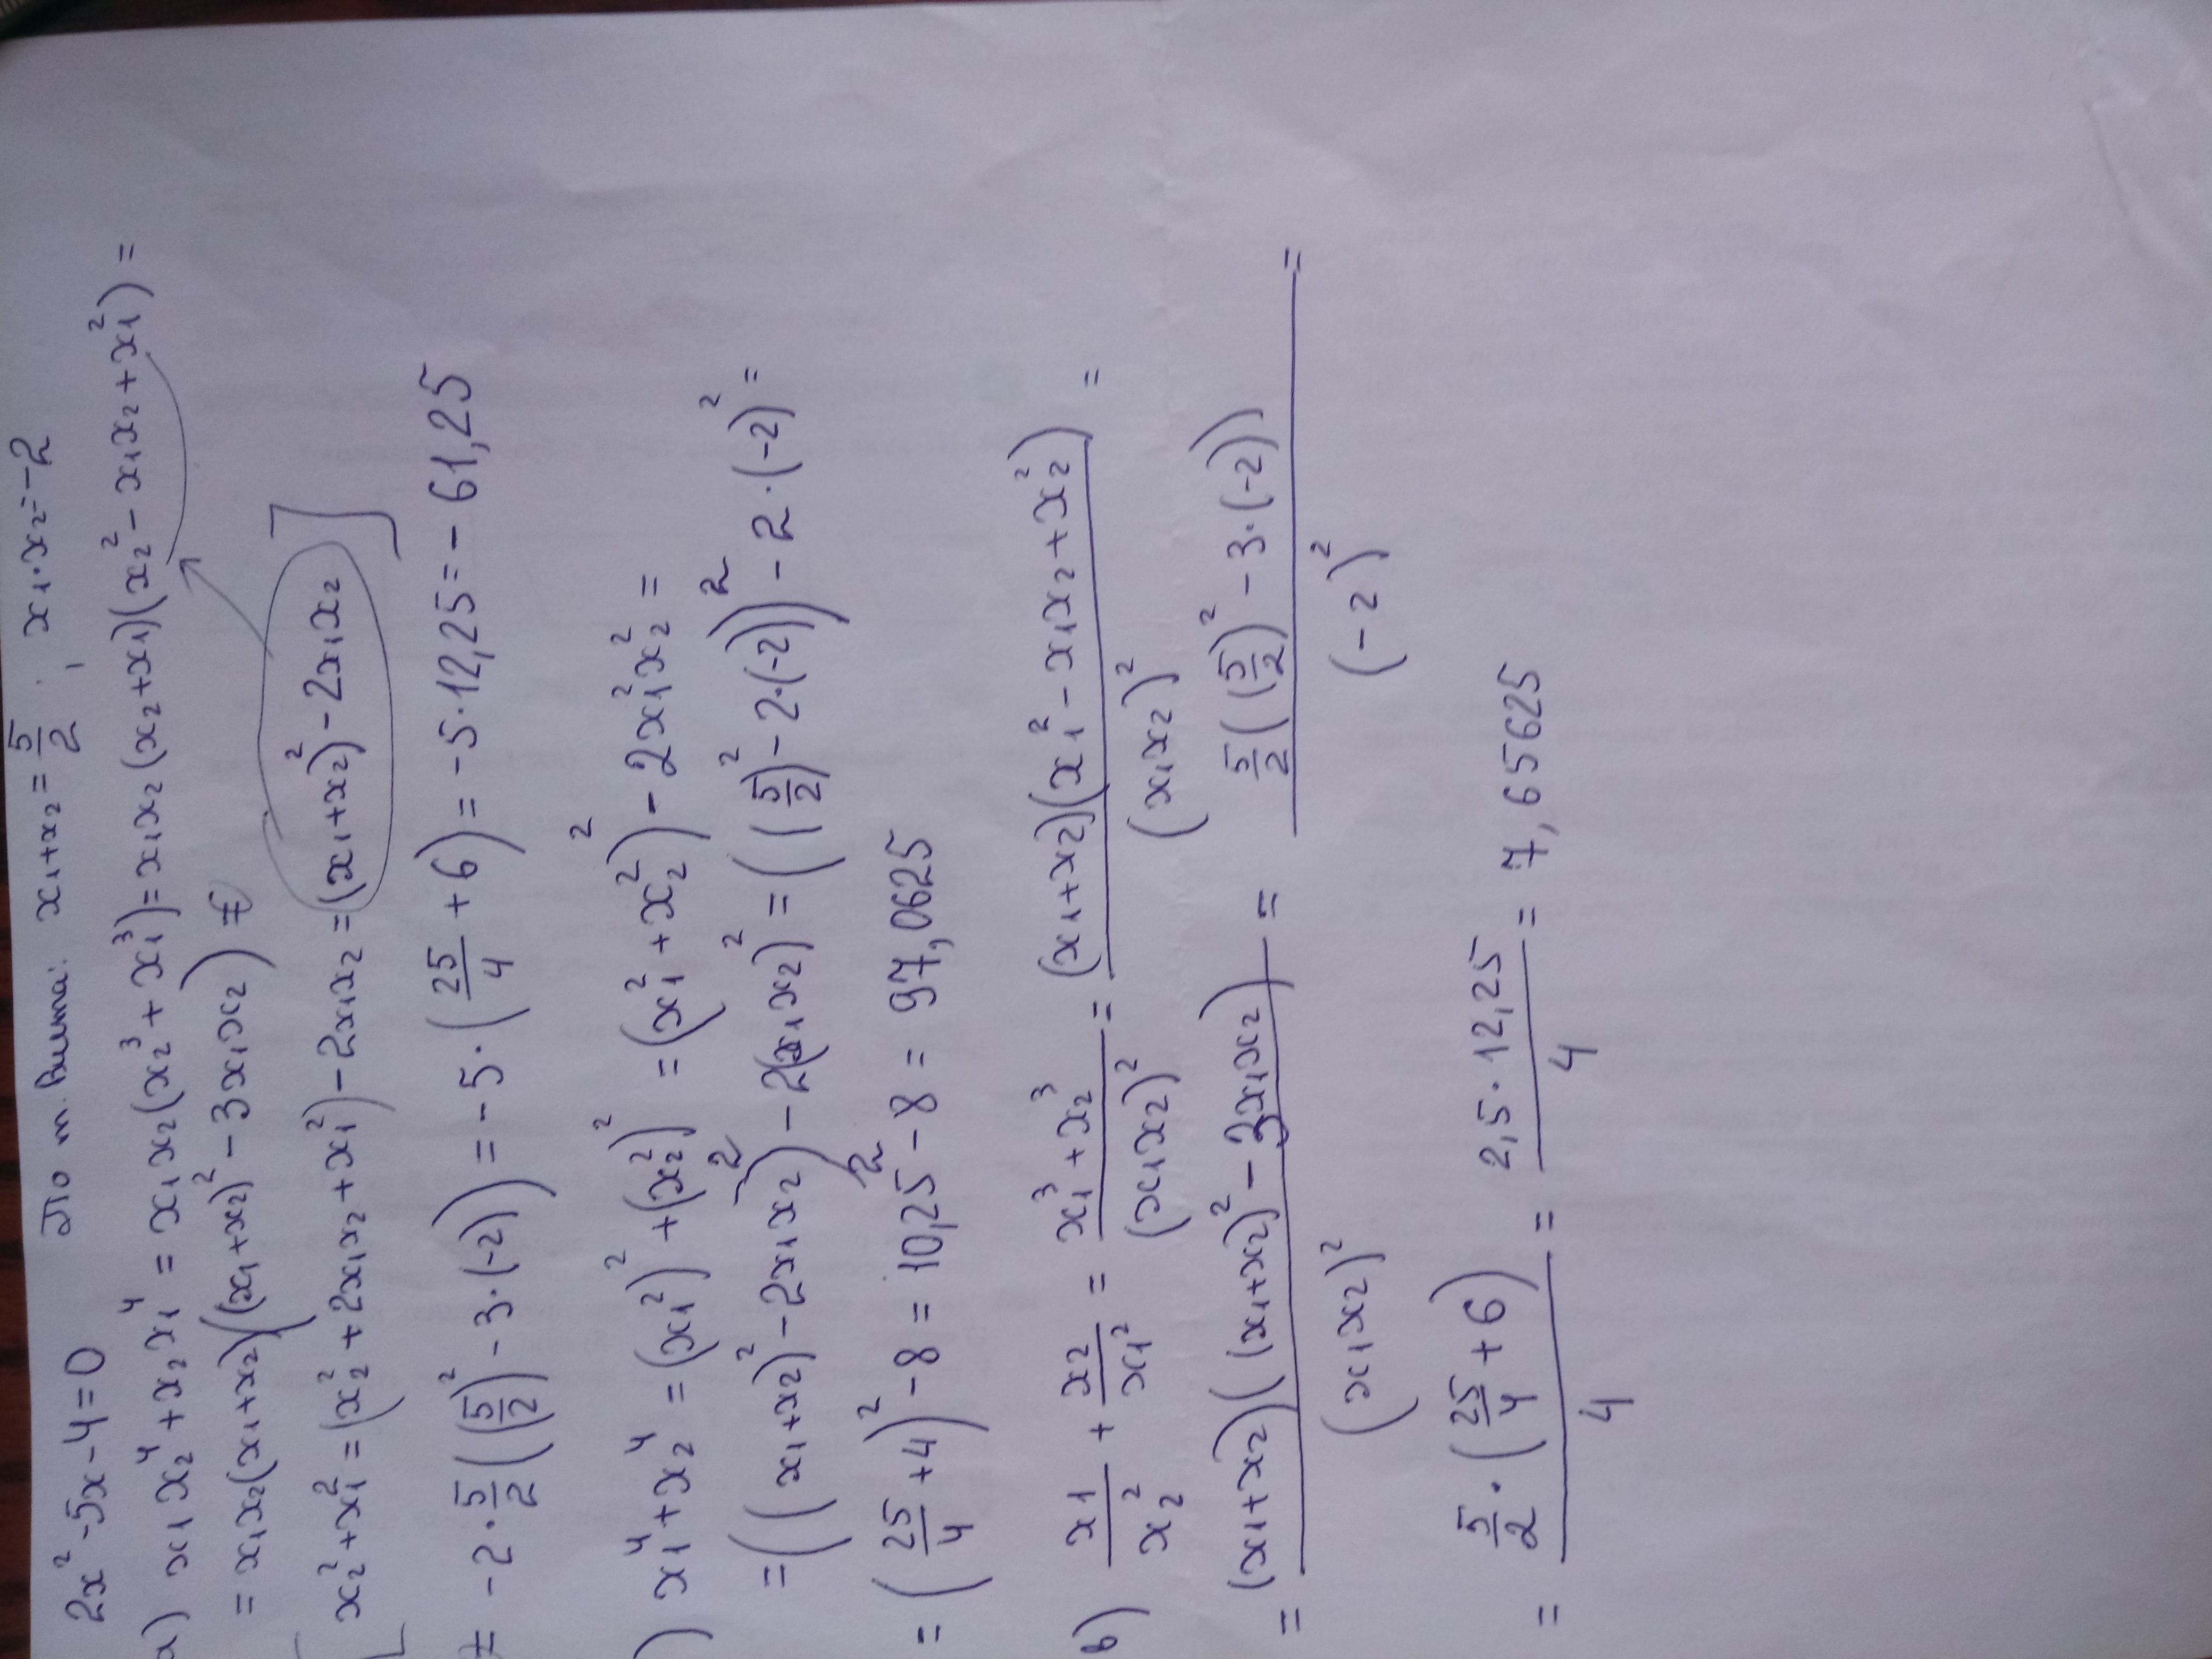 2x² - 5x - 4 = 0 По т. Виета: x₁+x₂ = 5/2 ; x₁·x₂ = -2
а) x₁x₂⁴ + x₂x₁⁴ = x₁x₂(x₂³ + x₁³) = x₁x₂(x₂+x₁)(x₂² - x₁x₂ + x₁²) =
= x₁x₂(x₁+x₂)((x₁+x₂)² - 3x₁x₂) =
[x₂² + x₁² = (x₂² + 2x₁x₂ + x₁²) - 2x₁x₂ = (x₁+x₂)² - 2x₁x₂]
= -2 · 5/2 ((5/2)² - 3·(-2)) = -5 · (25/4 + 6) = -5·12,25 = -61,25
) x₁⁴ + x₂⁴ = (x₁²)² + (x₂²)² = (x₁² + x₂²)² - 2x₁²x₂² =
= ((x₁+x₂)² - 2x₁x₂)² - 2(x₁x₂)² = ((5/2)² - 2·(-2))² - 2·(-2)² =
= (25/4 + 4)² - 8 = 10,25² - 8 = 97,0625
в) x₁/x₂² + x₂/x₁² = (x₁³ + x₂³)/(x₁x₂)² = (x₁+x₂)(x₁² - x₁x₂ + x₂²)/(x₁x₂)² =
= (x₁+x₂)((x₁+x₂)² - 3x₁x₂)/(x₁x₂)² = 5/2((5/2)² - 3·(-2))/(-2)² =
= 5/2 · (25/4 + 6)/4 = 2,5 · 12,25/4 = 7,65625